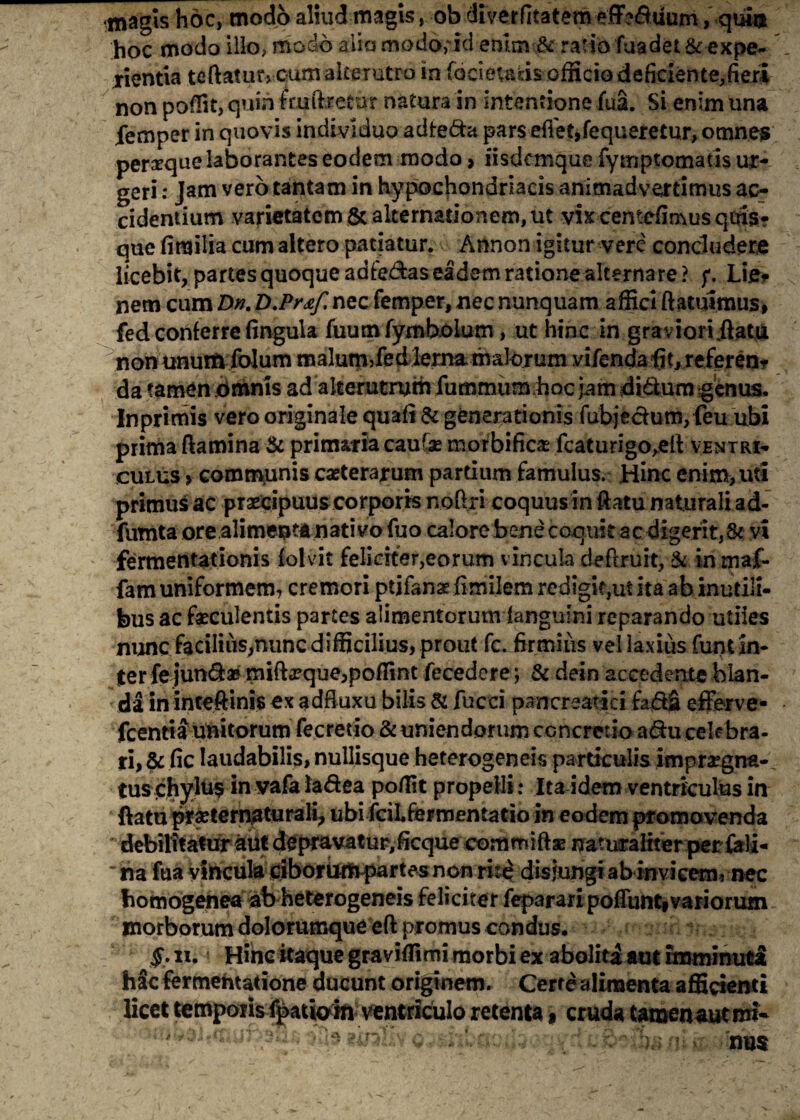 magis hoc, modò aliud magis, ob diversitatem effectuum, quia
hoc modo illo, modò alio modo, id enim & ratio suadet & expe-
rientia testatur, cum alterutro in societatis officio deficiente, fieri
non possit, quin frustretur natura in intentione suâ. Si enim una
semper in quovis individuo adfecta pars esset, sequeretur, omnes
peræque laborantes eodem modo, iisdemque symptomatis ur-
geri: Jam verò tantam in hypochondriacis animadvertimus ac-
cidentium varietatem & alternationem, ut vix centesimus quis-
que similia cum altero patiatur. Annon igitur verè concludere
licebit, partes quoque adfectas eâdem ratione alternare? ſ. Lie-
nem cum Dn. D. Præs. nec semper, nec nunquam affici statuimus,
sed conferre singula suum symbolum, ut hinc in graviori statu
non unum solum malum, sed lerna malorum visenda sit, referen-
da tamen omnis ad alterutrum summum hoc jam dictum genus.
Inprimis vero originale quasi & generationis subjectum, seu ubi
prima stamina & primaria causæ morbificæ scaturigo, est VENTRI-
CULUS, communis cæterarum partium famulus. Hinc enim, uti
primus ac præcipuus corporis nostri coquus in statu naturali ad-
sumta ore alimenta nativo suo calore benè coquit ac digerit, & vi
fermentationis solvit feliciter, eorum vincula destruit, & in mas-
sam uniformem, cremori ptisanæ similem redigit, ut ita ab inutili-
bus ac fæculentis partes alimentorum sanguini reparando utiles
nunc facilius, nunc difficilius, prout sc. firmiùs vel laxiùs sunt in-
ter se junctæ mistæque, possint secedere; & dein accedente blan-
dâ in intestinis ex adfluxu bilis & succi pancreatici factâ efferve-
scentiâ unitorum secretio & uniendorum concretio actu celebra-
ri, & sic laudabilis, nullisque heterogeneis particulis imprægna-
tus chylus in vasa lactea possit propelli: Ita idem ventriculus in
statu præternaturali, ubi scil. fermentatio in eodem promovenda
debilitatur aut depravatur, sicque commistæ naturaliter per sali-
na sua vincula ciborum partes non ritè disjungi ab invicem, nec
homogenea ab heterogeneis feliciter separari possunt, variorum
morborum dolorumque est promus condus.
§. 11. Hinc itaque gravissimi morbi ex abolitâ aut imminutâ
hâc fermentatione ducunt originem. Certè alimenta afficienti
licet temporis spatio in ventriculo retenta, cruda tamen aut mi-
nus